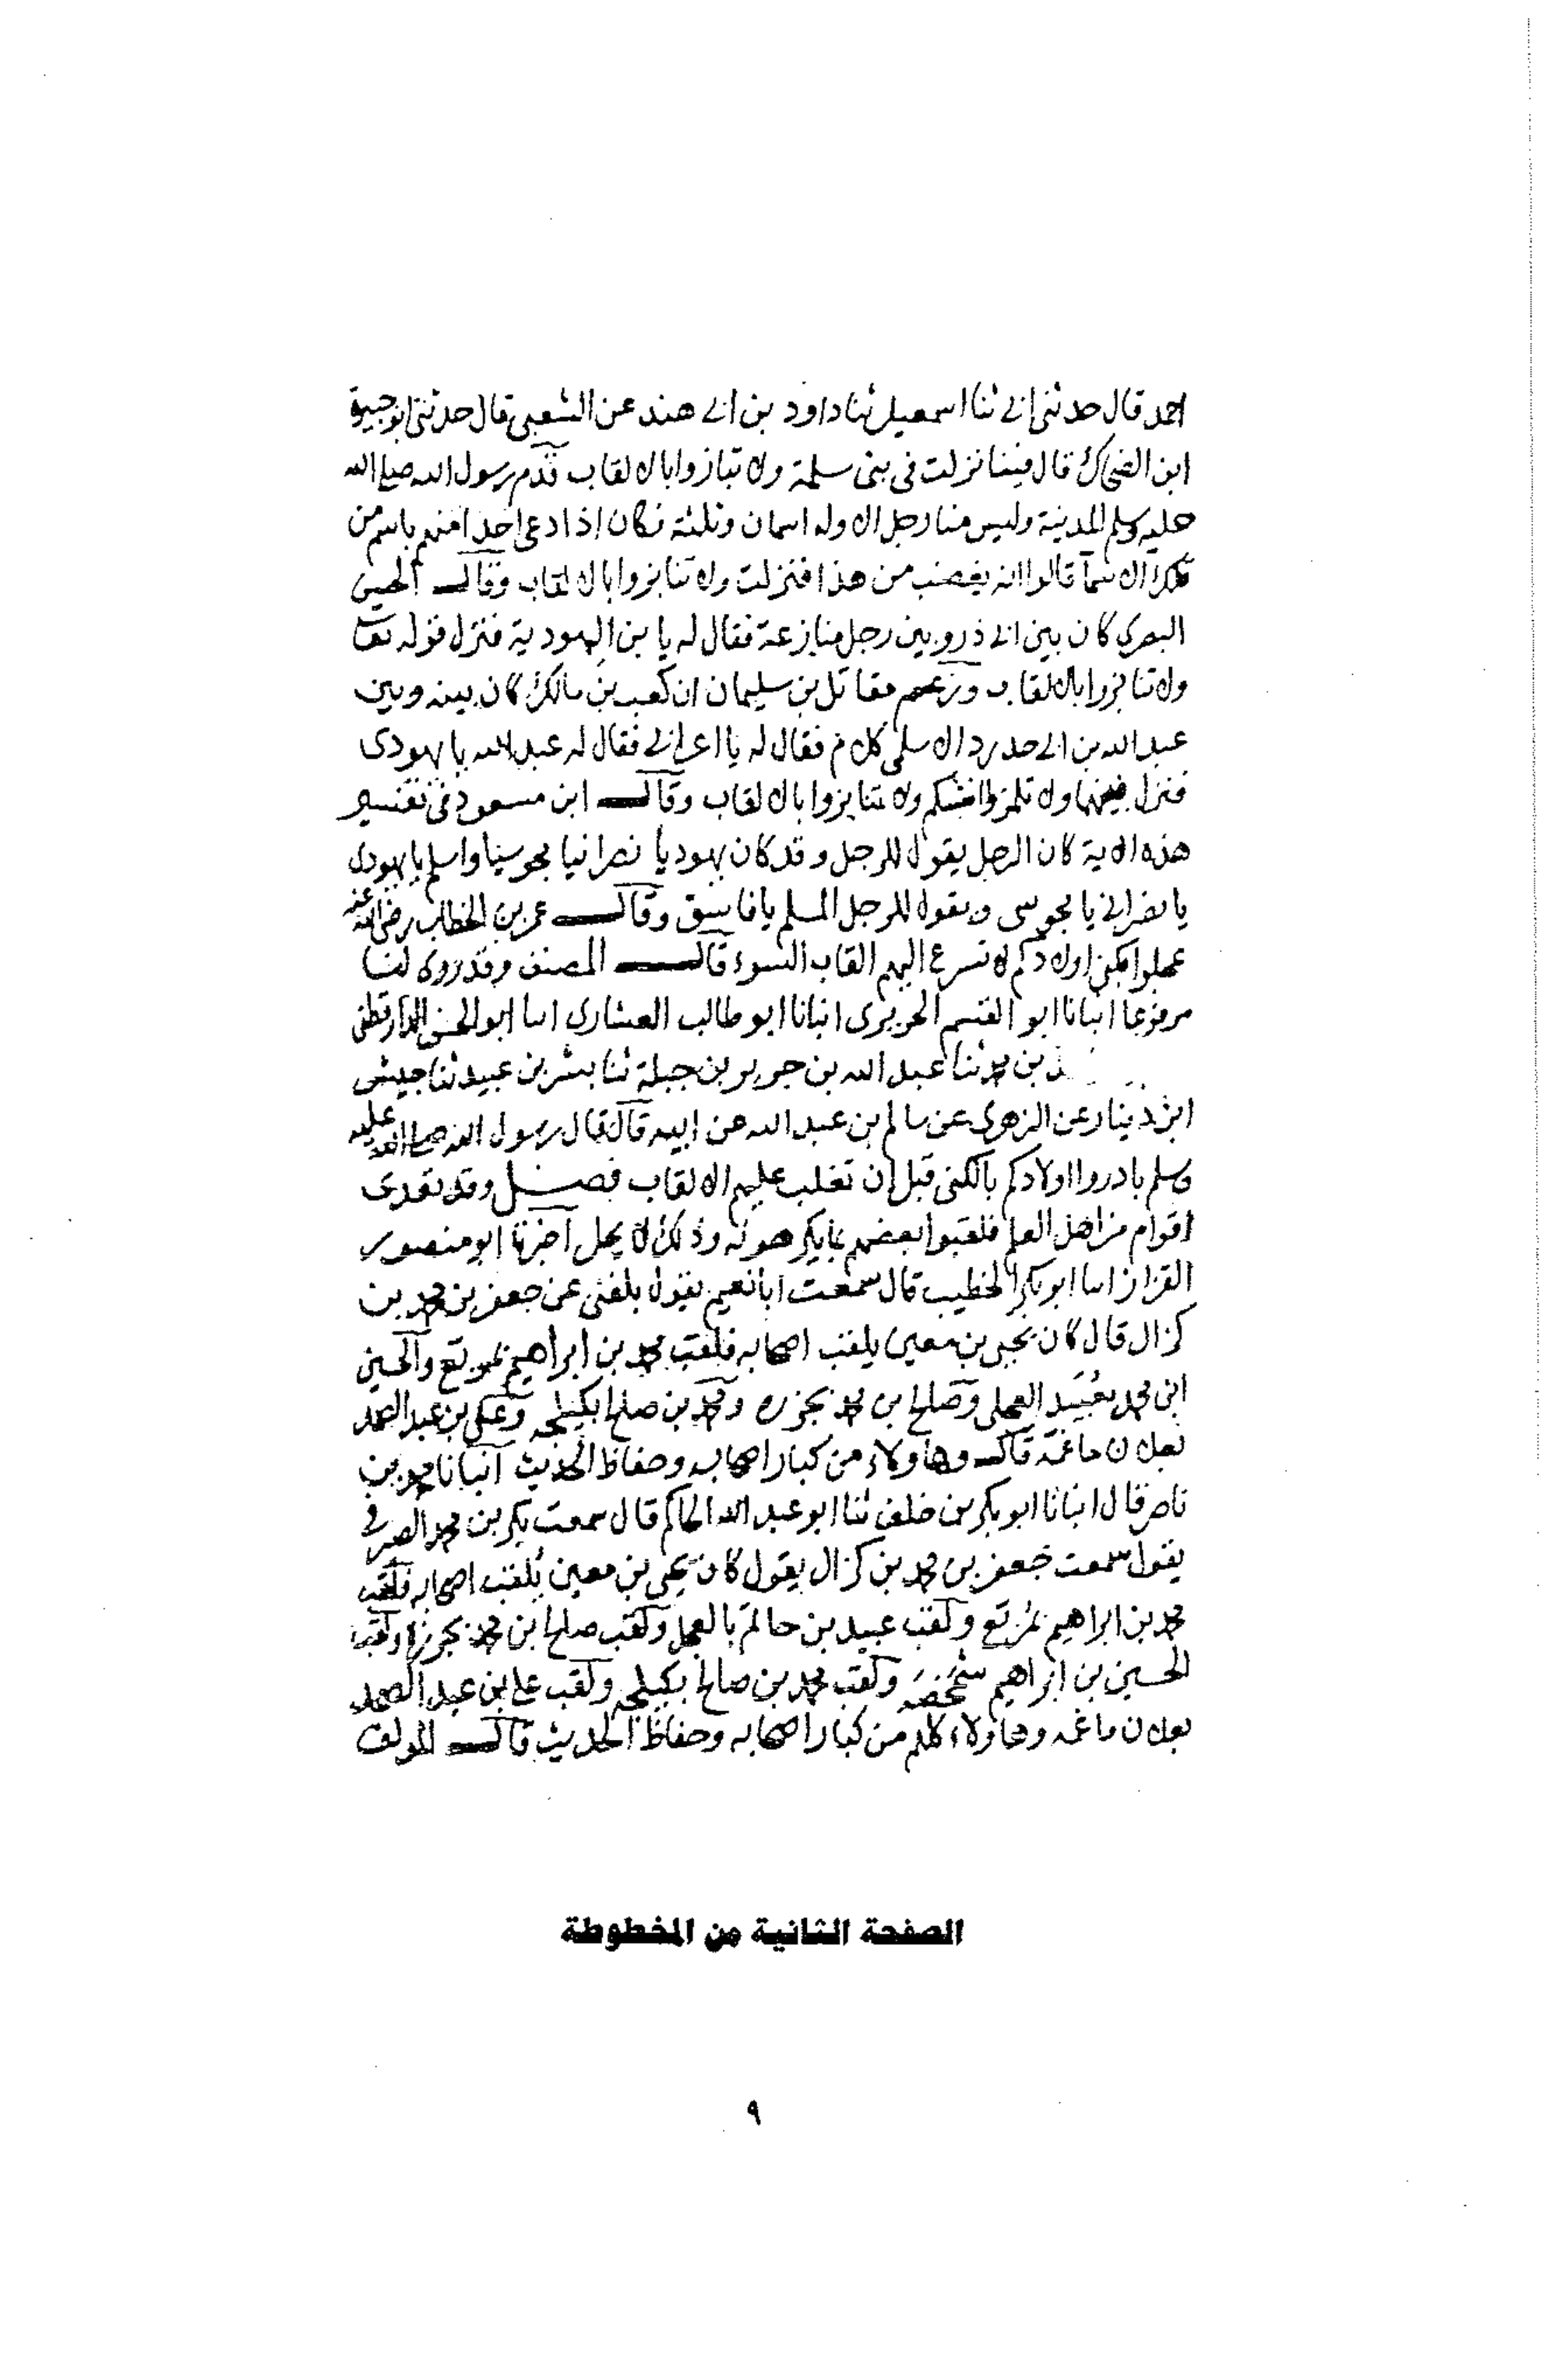 احمد قال حدثنى ابى ثنا اسمعيل ثنا داود بن ابى هند عن الشعبى قال حدثنى ابو جبيرة
ابن الضحاك قال فينا نزلت فى بنى سلمة ولا تنابزوا بالالقاب قدم رسول الله صلى الله
عليه وسلم المدينة وليس منا رجل الا وله اسمان وثلثة فكان اذا دعى احدا منهم باسم من
تلك الاسما قالوا انه يغضب من هذا فنزلت ولا تنابزوا بالالقاب وقال الحسن
البصرى كان بين ابى ذر وبين رجل منازعة فقال له يا بن اليهودية فنزل قوله تعا
ولا تنابزوا بالالقاب وزعم مقاتل بن سليمان ان كعب بن مالك كان بينه وبين
عبد الله بن ابى حدرد الاسلمى كلام فقال له يا اعرابى فقال له عبد الله يا يهودى
فنزل فيهما ولا تلمزوا انفسكم ولا تنابزوا بالالقاب وقال ابن مسعود فى تفسير
هذه الاية كان الرجل يقول للرجل وقد كان يهوديا نصرانيا مجوسيا واسلم يا يهودى
يا نصرانى يا مجوسى ويقول للرجل المسلم يا فاسق وقال عمر بن الخطاب رضى الله عنه
عجلوا بكنى اولادكم لا تسرع اليهم القاب السوء قال المصنف وقد روى لنا
مرفوعا انبانا ابو القسم الحريرى انبانا ابو طالب العشارى انبا ابو الحسن الدارقطنى
بن محمد ثنا عبد الله بن جرير بن جبلة ثنا بشر بن عبيد ثنا حبيش
ابن دينار عن الزهرى عن سالم بن عبد الله عن ابيه قال قال رسول الله صلى الله عليه
وسلم بادروا اولادكم بالكنى قبل ان تغلب عليهم الالقاب فصل وقد تعدى
اقوام من اهل العلم فلقبوا بعضهم بما يكرهونه وذلك لا يحل اخبرنا ابو منصور
القزاز انبا ابو بكر الخطيب قال سمعت ابا نعيم يقول بلغنى عن جعفر بن محمد بن
كزال قال كان يحيى بن معين يلقب اصحابه فلقب محمد بن ابراهيم بمربع والحسين
ابن محمد بعبيد العجلى وصالح بن محمد بجزره ومحمد بن صالح بكيلجه وعلى بن عبد الصمد
بعلان ماغمة قال وهاولاء من كبار اصحابه وحفاظ الحديث انبانا محمد بن
ناصر قال انبانا ابو بكر بن خلف ثنا ابو عبد الله الحاكم قال سمعت بكر بن محمد الصرفى
يقول سمعت جعفر بن محمد بن كزال يقول كان يحيى بن معين يلقب اصحابه فلقب
محمد بن ابراهيم بمربع ولقب عبيد بن حاتم بالعجل ولقب صالح ابن محمد بجزرة ولقب
الحسين بن ابراهيم شخصه ولقب محمد بن صالح بكيلجه ولقب على بن عبد الصمد
بعلان ماغمه وهاولاء كلهم من كبار اصحابه وحفاظ الحديث قال المولف
الصفحة الثانية من المخطوطة
٩